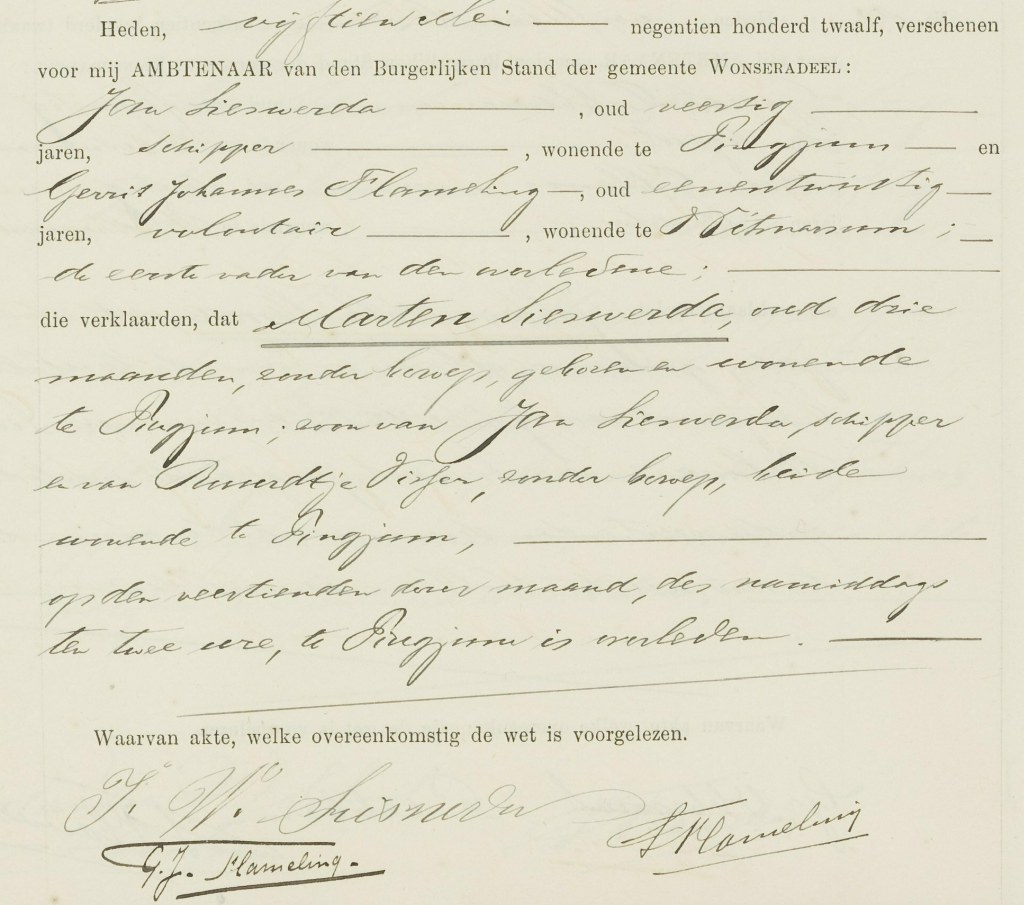 Heden, vijftien Mei negentien honderd twaalf, verschenen
voor mij AMBTENAAR van den Burgerlijken Stand der gemeente WONSERADEEL:
Jan Sieswerda, oud veertig
jaren, schipper, wonende te Pingjum en
Gerrit Johannes Flameling, oud eenentwintig
jaren, volontair, wonende te Witmarsum;
de eerste vader van den overledene;
die verklaarden, dat Marten Sieswerda, oud drie
maanden, zonder beroep, geboren en wonende
te Pingjum; zoon van Jan Sieswerda, schipper
en van Ruurdtje Visser, zonder beroep, beide
wonende te Pingjum,
op den veertienden dezer maand, des namiddags
ten twee ure, te Pingjum is overleden.
Waarvan akte, welke overeenkomstig de wet is voorgelezen.
J. W. Sieswerda
Flameling
G. J. Flameling.